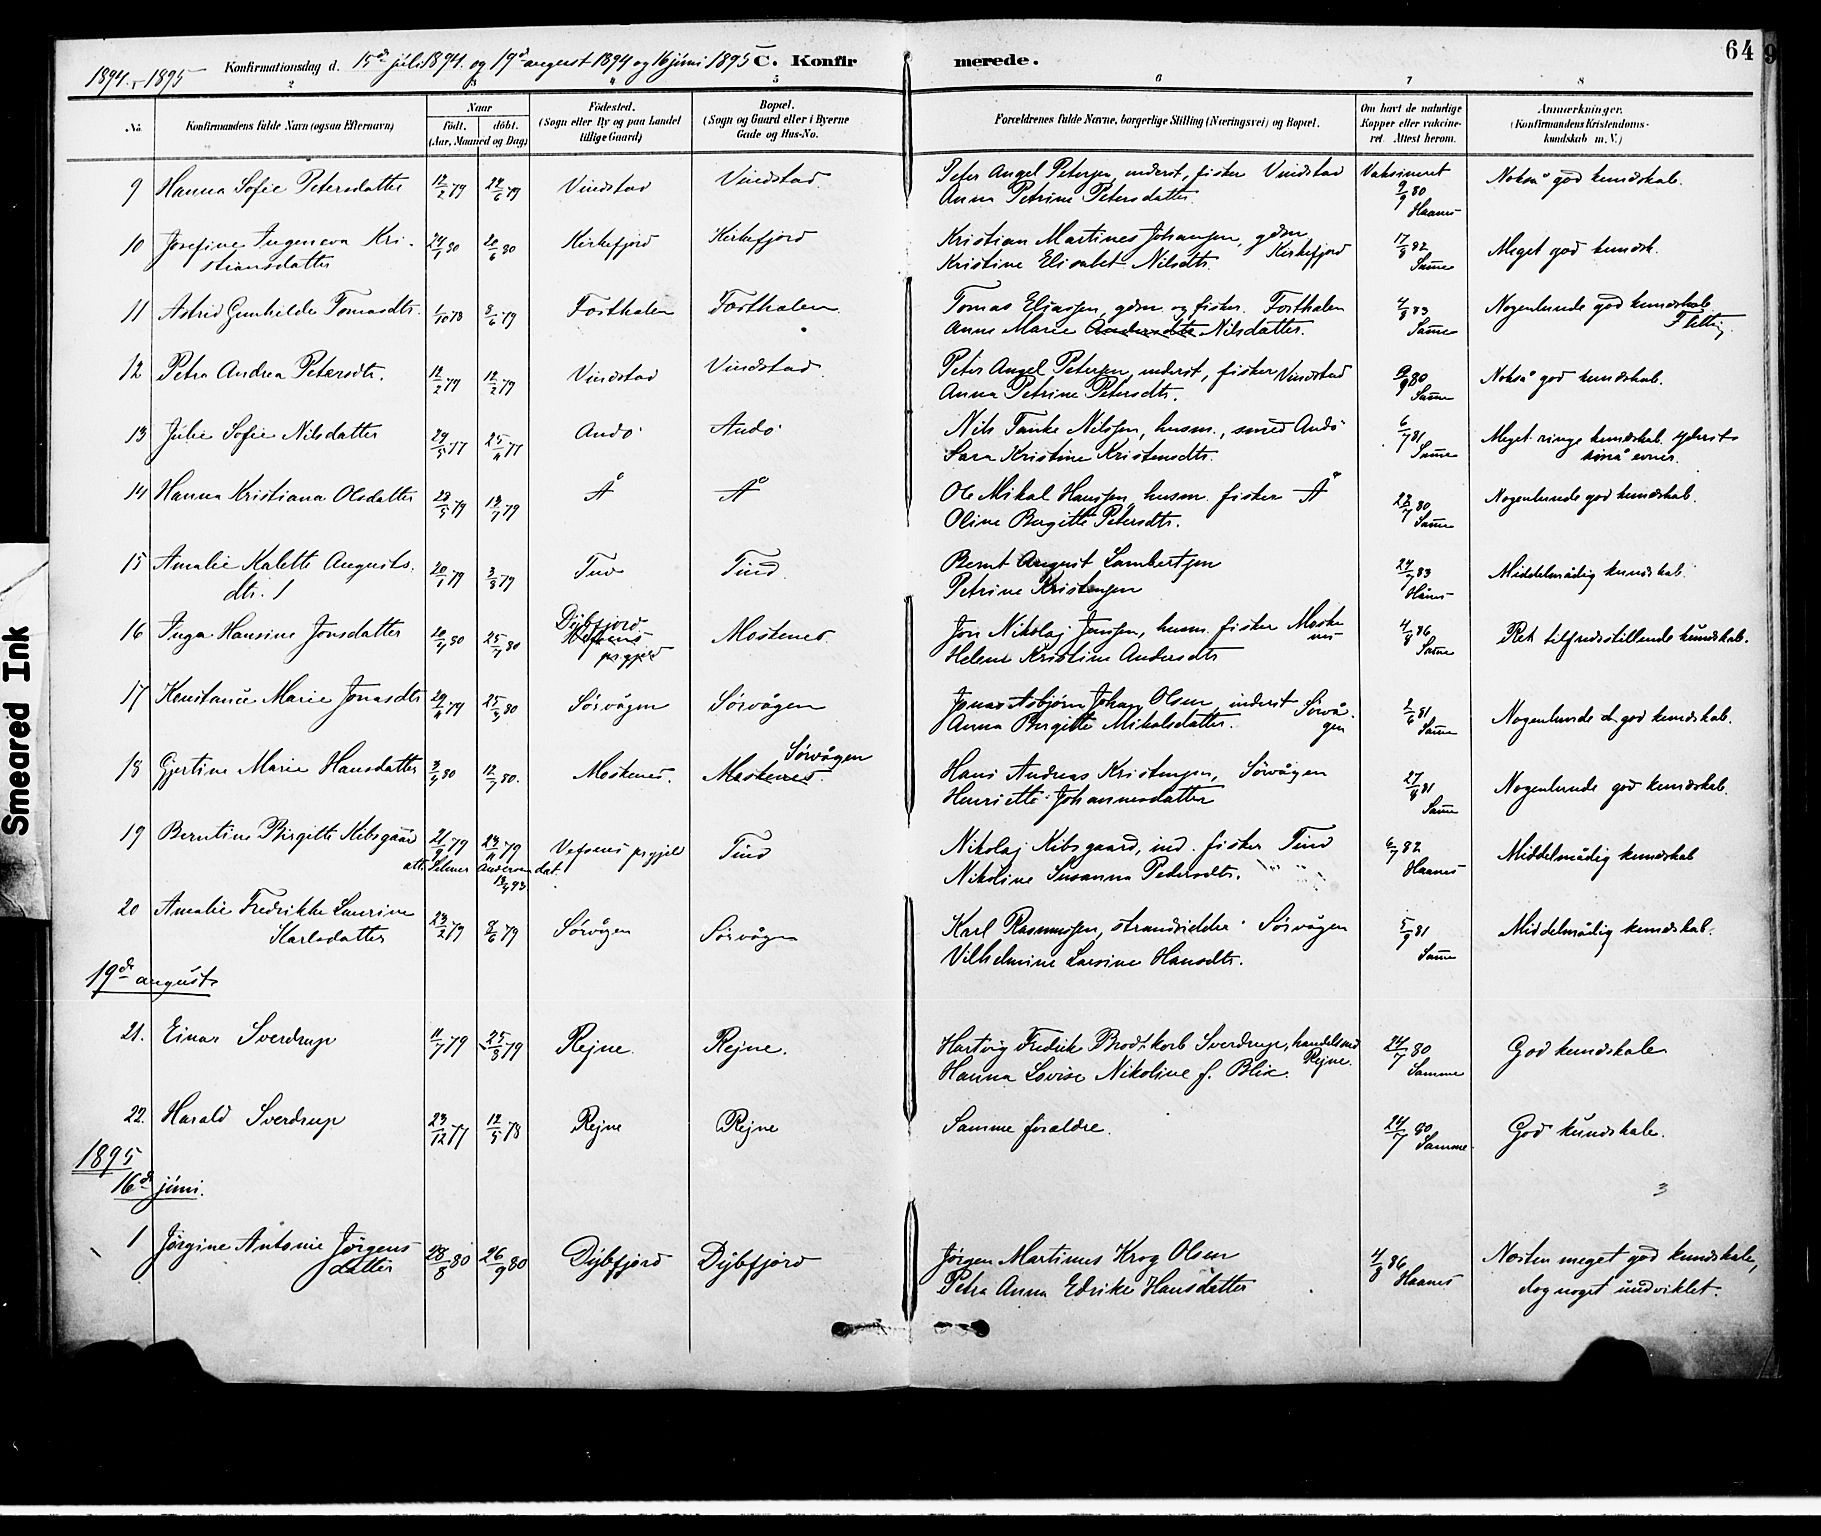 64
9
1894 - 1895
Konfirmationsdag d. 15de juli 1894. og 19de august 1894 og 16 juni 1895
C. Konfirmerede.
2 3 4 5 6 7 8
No.
Konfirmandens fulde Navn (ogsaa Efternavn)
Naar
født. døbt.
(Aar, Maaned og Dag)
Fødested.
(Sogn eller By og paa Landet
tillige Gaard)
Bopæl.
(Sogn og Gaard eller i Byerne
Gade og Hus-No.
Forældrenes fulde Navne, borgerlige Stilling (Næringsvei) og Bopæl.
Om havt de naturlige
Kopper eller vakcine-
ret. Attest herom.
Anmærkninger.
(Konfirmandens Kristendoms-
kundskab m. V.)
9 Hanna Sofie Petersdatter 12/2 79 22/6 79 Vindstad Vindstad. Peter Angel Petersen, inderst, fisker Vindstad Vaksineret Nokså god kundskab.
Anna Petrine Petersdatter. 9/9 80
Haanes
10 Josefine Ingeneva Kri- 24/1 80 20/6 80 Kirkefjord Kirkefjord Kristian Martines Johansen, gdm 17/8 82 Meget god kundsk.
stiansdatter Kristine Elisabet Nilsdtr. Kirkefjord Samme
11 Astrid Gunhilde Tomasdtr. 1/10 78 8/6 79 Forsthalen Forsthalen. Tomas Eliassen, gdm og fisker. Forsthalen 4/8 83 Nogenlunde god kundskab
Anne Marie Andersdtr Nilsdatter. Samme Flittig.
12 Petra Andrea Petersdtr. 12/2 79 12/2 79 Vindstad Vindstad. Peter Angel Petersen, inderst, fisker Vindstad 9/9 80 Nokså god kundskab.
Anna Petrine Petersdtr. Samme
13 Julie Sofie Nilsdatter 29/5 77 25/11 77 Andø Andø Nils Tanke Nilssen, husm., smed Andø 6/7 81 Meget ringe kundskab. yderst
Sara Kristine Kristensdtr. Samme små evner.
14 Hanna Kristiana Olsdatter 23/5 79 13/7 79 Å Å Ole Mikal Hanssen, husm. fisker Å 23/7 80 Nogenlunde god kundskab.
Oline Birgitte Petersdtr. Samme
15 Amalie Kalette Augusts- 20/1 79 3/8 79 Tuv Tind. Bernt August Lambertsen 24/7 83 Middelmådig kundskab.
dtr. Petrine Kristensen Hånes
16 Inga Hansine Jonsdatter 20/4 80 25/7 80 Dybfjord Moskenes. Jon Nikolaj Jenssen, husm. fisker Moske 4/8 86 Ret tilfredsstillende kundskab.
Vefsens prgjeld Helene Kristine Andersdtr nes Samme
17 Konstance Marie Jonasdtr 29/11 79 25/3 80 Sørvågen Sørvågen Jonas Asbjørn Johan Olsen, inderst Sørvå- 2/6 81 Nogenlunde god kundskab.
Anna Birgitte Mikalsdatter. gen Samme
18 Gjertine Marie Hansdatter 3/4 80 12/7 80. Moskenes. Moskenes. Sørvågen Hans Andreas Kristensen, Sørvågen 27/8 81 Nogenlunde god kundskab.
Henriette Johannesdatter Samme
19 Berntine Birgitte Kibsgaard 21/9 79 23/11 79 Vefsens prgjeld Tind Nikolaj Kibsgaard, ind. fisker Tind 6/7 82 Middelmådig kundskab
13/4 93 Nikoline Susanna Pedersdtr. Haanes
20 Amalie Fredrikke Laurine 23/2 79 8/6 79 Sørvågen Sørvågen Karl Rasmussen, strandsidder Sørvågen 5/9 81 Middelmådig kundskab.
Karlsdatter Vilhelmine Larsine Hansdtr. Samme
19de august
21. Einar Sverdrup 11/7 79 25/8 79 Rejne. Rejne. Hartvig Fredrik Brodtkorb Sverdrup, handelsmd 24/7 80 God kundskab
Hanna Lovise Nikoline f. Blix. Rejne. Samme
22. Harald Sverdrup 23/12 77 12/5 78 Rejne Rejne Samme forældre. 24/7 80 God kundskab.
Samme
1895
16de juni.
3
1 Jørgine Antonie Jørgens 28/8 80 26/9 80 Dybfjord Dybfjord Jørgen Martinus Krog Olsen 4/8 86 Næsten meget god kundskab,
datter Petra Anna Edrike Hansdatter Haanes dog noget uudviklet.
Smeared Ink